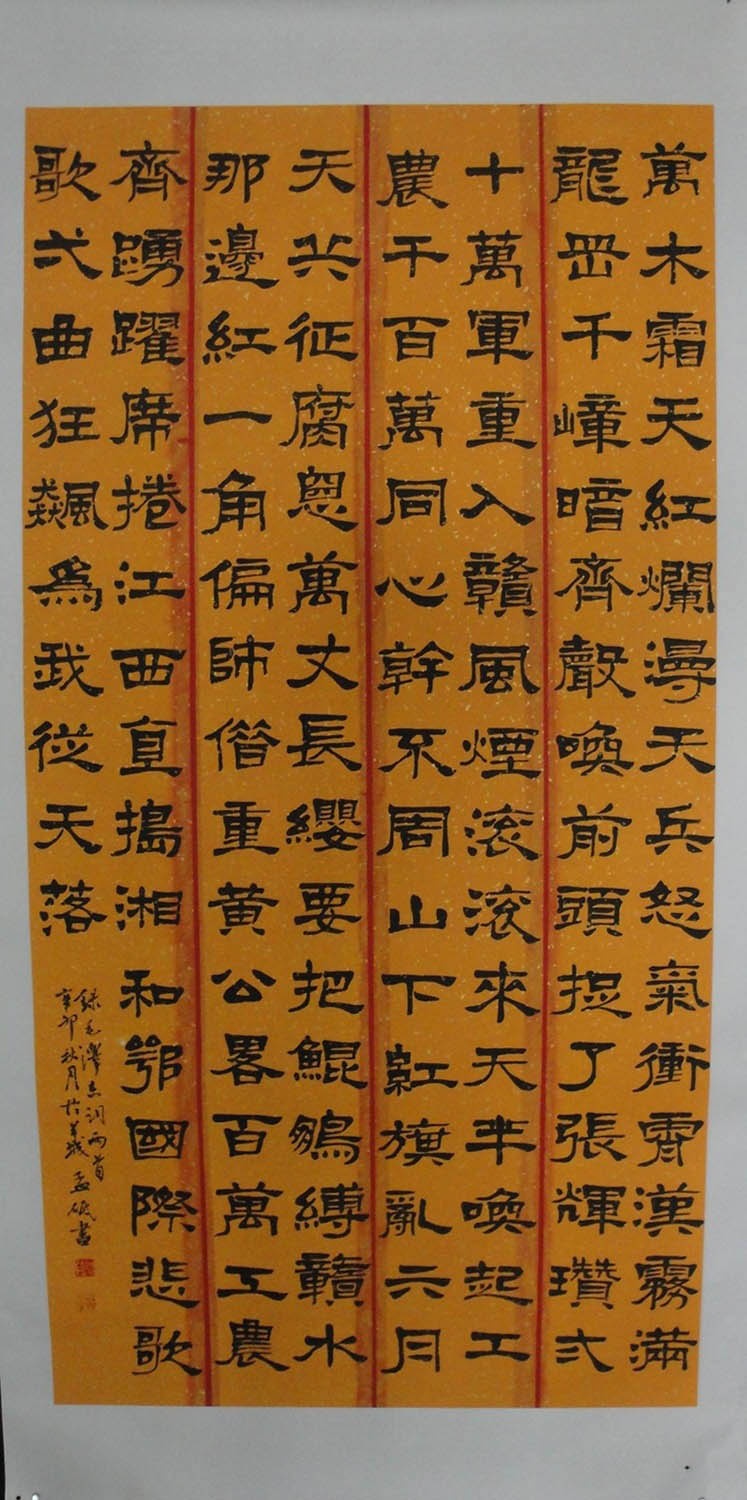 萬木霜天紅爛漫天兵怒氣衝霄漢霧滿
龍岡千嶂暗齊聲喚前頭捉了張輝瓚弍
十萬軍重入贛風煙滾滾來天半喚起工
農千百萬同心幹不周山下紅旗亂六月
天兵征腐惡萬丈長纓要把鯤鵬縛贛水
那邊紅一角偏師借重黃公畧百萬工農
齊踴躍席捲江西直搗湘和鄂國際悲歌
歌弌曲狂飆爲我從天落
錄毛澤東詞兩首
辛卯秋月於羊城孟書